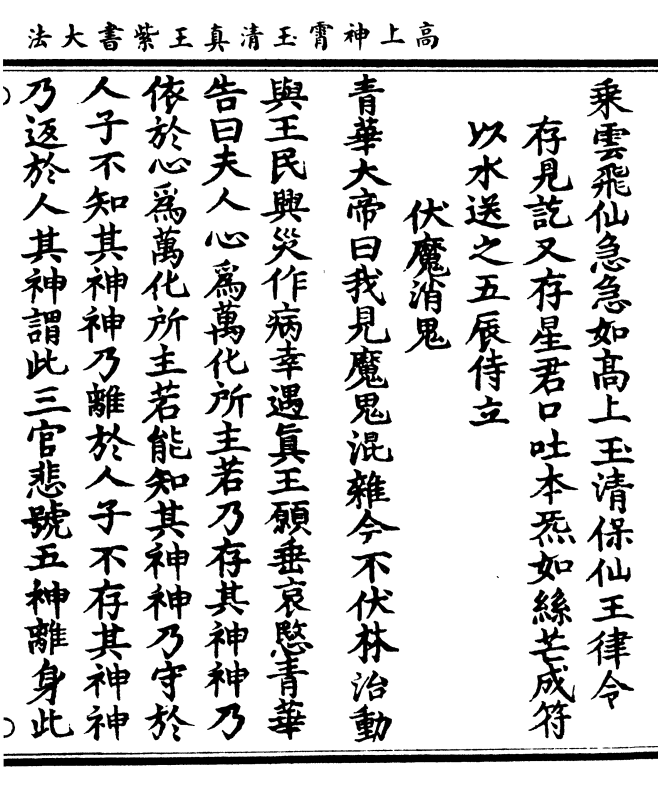 高上神霄玉清真王紫書大法
乘雲飛仙急急如高上玉清保仙王律令
存見訖又存星君口吐本炁如絲芒成符
以水送之五辰侍立
伏魔消鬼
青華大帝曰我見魔鬼混雜今不伏林治動
與王民興災作病幸遇眞王願垂哀愍青華
告曰夫人心爲萬化所主若乃存其神神乃
依於心爲萬化所主若能知其神神乃守於
人子不知其神神乃離於人子不存其神神
乃返於人其神謂此三官悲號五神離身此